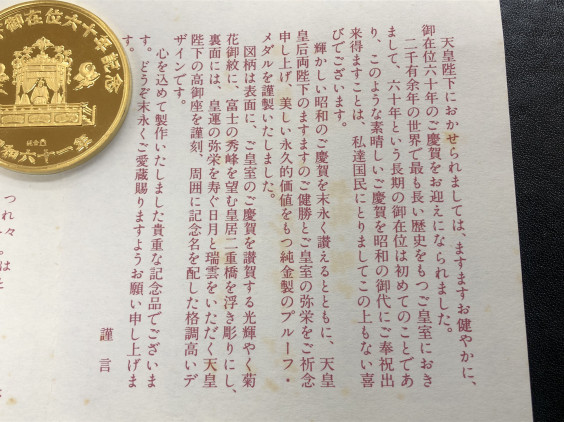 天皇陛下におかせられましては、ますますお健やかに、
御在位六十年のご慶賀をお迎えになられました。
二千有余年の世界で最も長い歴史をもつご皇室におき
まして、六十年という長期の御在位は初めてのことであ
り、このような素晴しいご慶賀を昭和の御代にご奉祝出
来得ますことは、私達国民にとりましてこの上もない喜
びでございます。
輝かしい昭和のご慶賀を末永く讃えるとともに、天皇
皇后両陛下のますますのご健勝とご皇室の弥栄をご祈念
申し上げ、美しい永久的価値をもつ純金製のプルーフ・
メダルを謹製いたしました。
図柄は表面に、ご皇室のご慶賀を讃賀する光輝やく菊
花御紋に、富士の秀峰を望む皇居二重橋を浮き彫りにし、
裏面には、皇運の弥栄を寿ぐ日月と瑞雲をいただく天皇
陛下の高御座を謹刻、周囲に記念名を配した格調高いデ
ザインです。
心を込めて製作いたしました貴重な記念品でございま
す。どうぞ末永くご愛蔵賜りますようお願い申し上げま
す。
謹言
御在位六十年記念
純金
和六十一年
つれ々